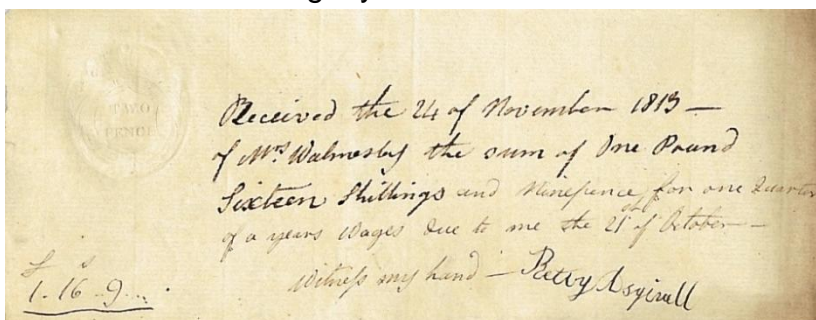 TWO
PENCE
Received the 24 of November 1813 —
of Mrs Walmesley the sum of One Pound
Sixteen Shillings and Ninepence for one Quarter
of a years Wages due to me the 21st of October —
Witness my hand — Betty Aspinall
£ s
1. 16 .. 9 ....